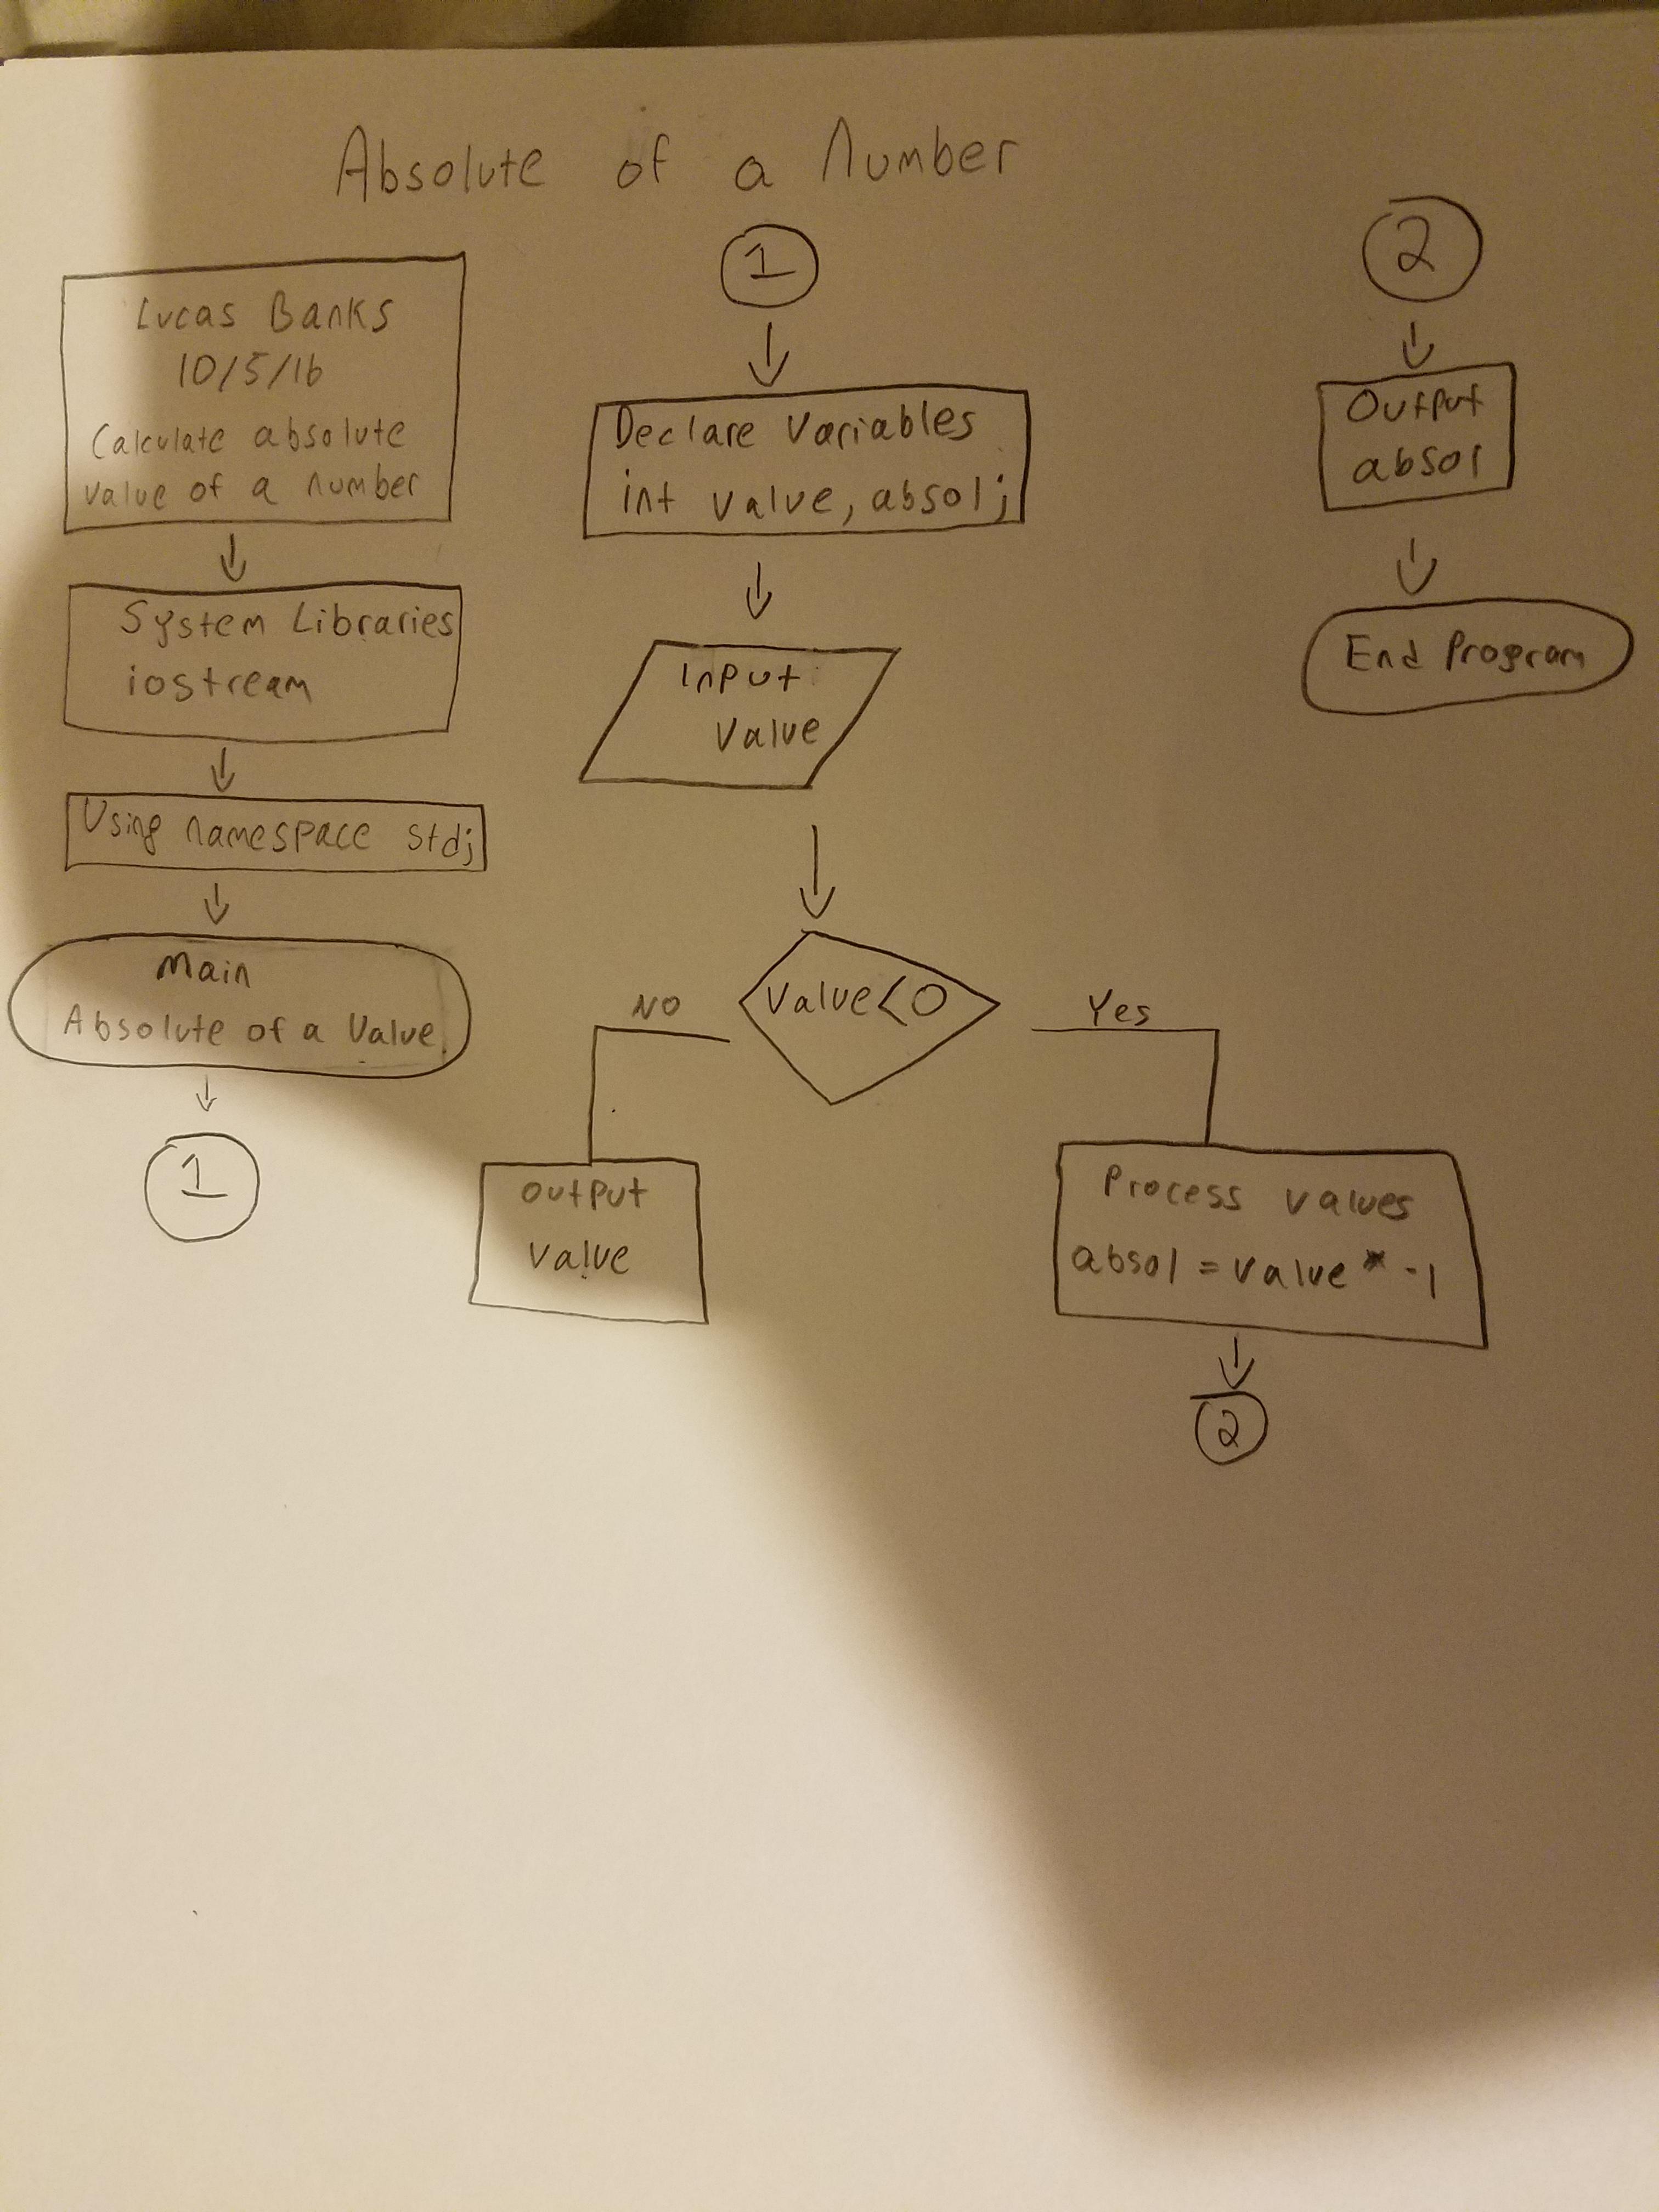 Absolute of a Number
Lucas Banks
10/5/16
Calculate absolute
value of a number
System Libraries
iostream
Using namespace std;
Main
Absolute of a Value
1
1
Declare Variables
int value, absol;
Input
Value
Value<0
NO
Yes
output
value
Process values
absol = value * -1
2
2
Output
absol
End Program